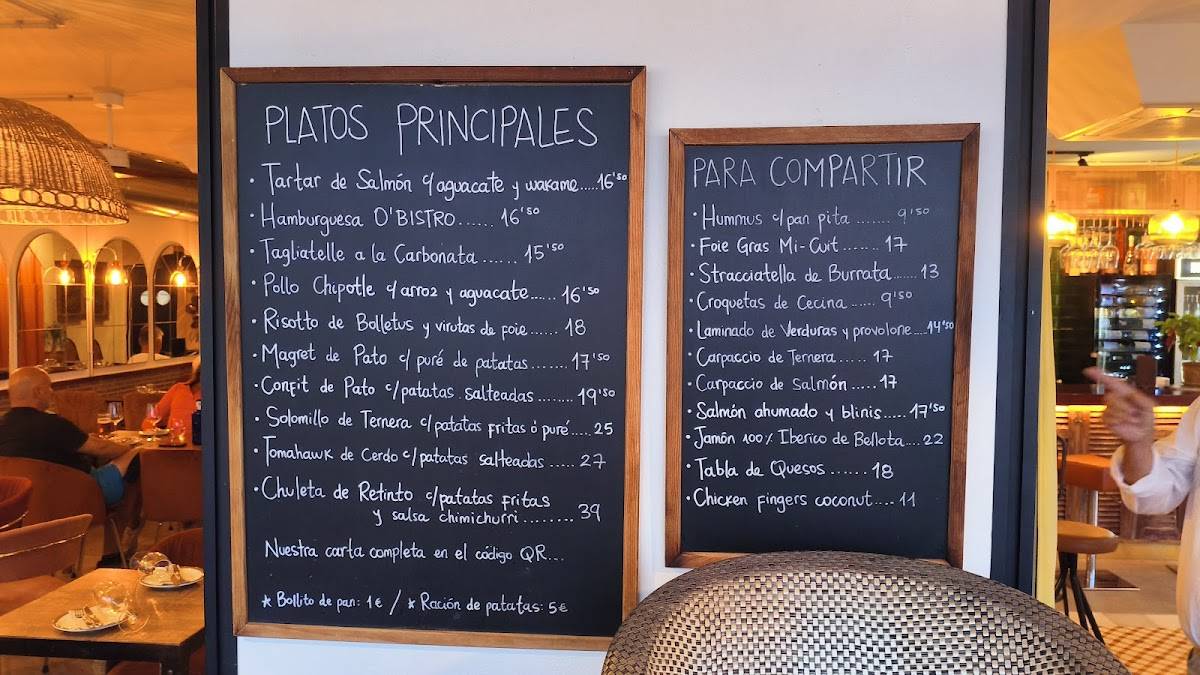 PLATOS PRINCIPALES
• Tartar de Salmón c/aguacate y wakame.....16'50
• Hamburguesa O'BISTRO...... 16'50
• Tagliatelle a la Carbonata ...... 15'50
• Pollo Chipotle c/arroz y aguacate..... 16'50
• Risotto de Bolletus y virutas de foie...... 18
• Magret de Pato c/ puré de patatas.......17'50
• Confit de Pato c/patatas salteadas........19'50
• Solomillo de Ternera c/patatas fritas ó puré.....25
• Tomahawk de Cerdo c/patatas salteadas ..... 27
• Chuleta de Retinto c/patatas fritas
y salsa chimichurri........ 39
Nuestra carta completa en el código QR....
★ Bollito de pan: 1€ / ★ Ración de patatas: 5€
PARA COMPARTIR
• Hummus c/pan pita ....... 9'50
• Foie Gras Mi-Cuit....... 17
• Stracciatella de Burrata...... 13
• Croquetas de Cecina ..... 9'50
• Laminado de Verduras y provolone....14'50
• Carpaccio de Ternera..... 17
• Carpaccio de Salmón ..... 17
• Salmón ahumado y blinis.....17'50
• Jamón 100% Iberico de Bellota.... 22
• Tabla de Quesos ...... 18
• Chicken fingers coconut.... 11